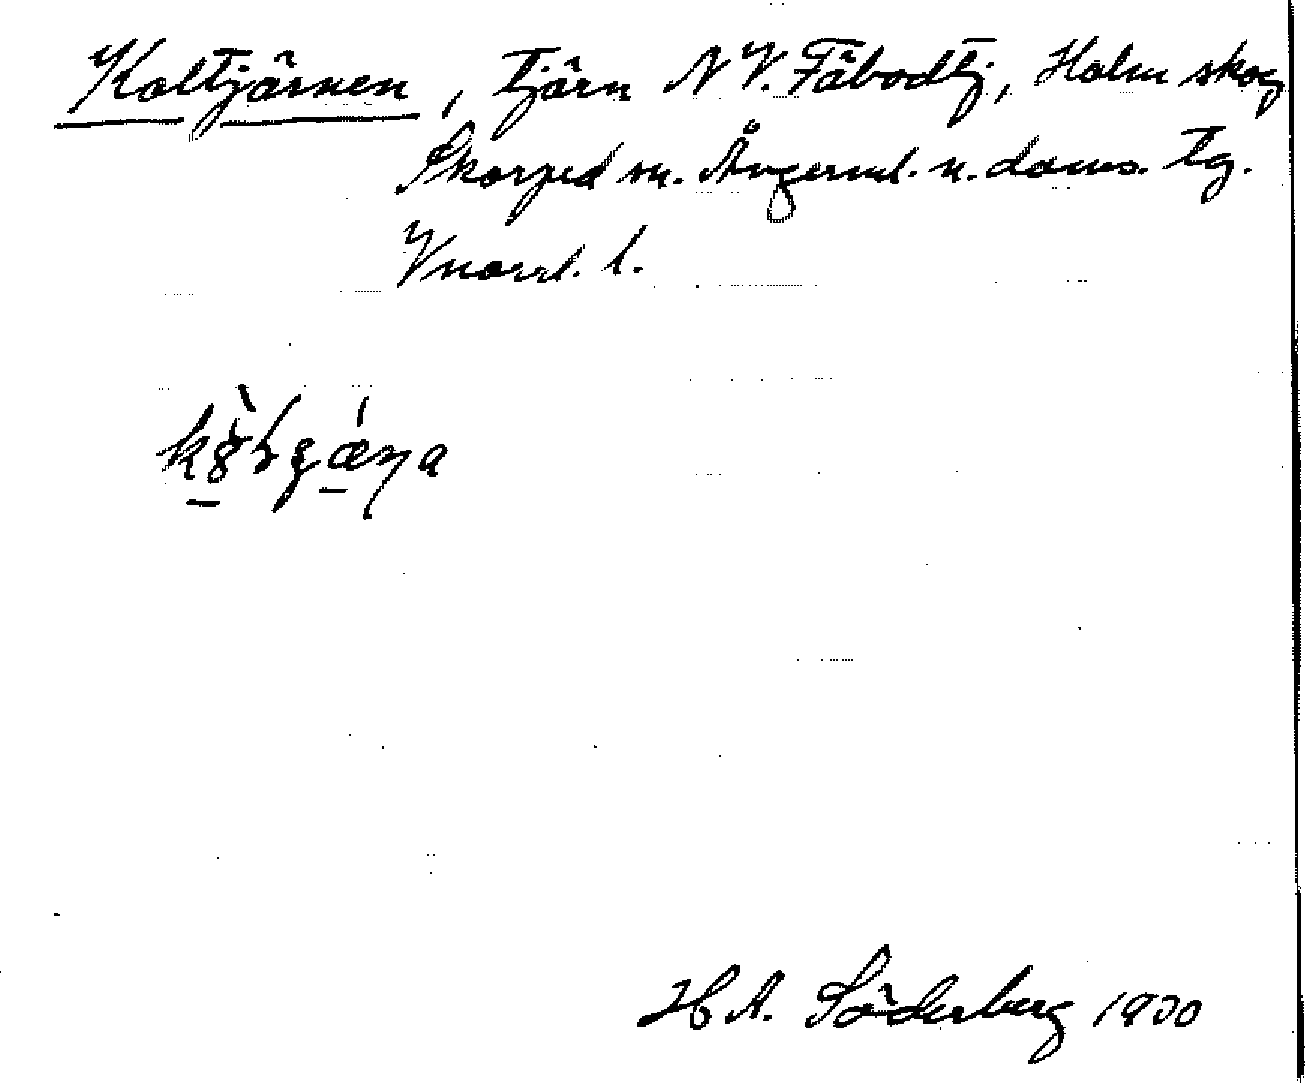 Koltjärnen, tjärn N V. Fäbodtj, Holm skog
Skorped sn. Ångerml. n. doms. tg.
Vnorrl. l.
H A. Söderberg 1930